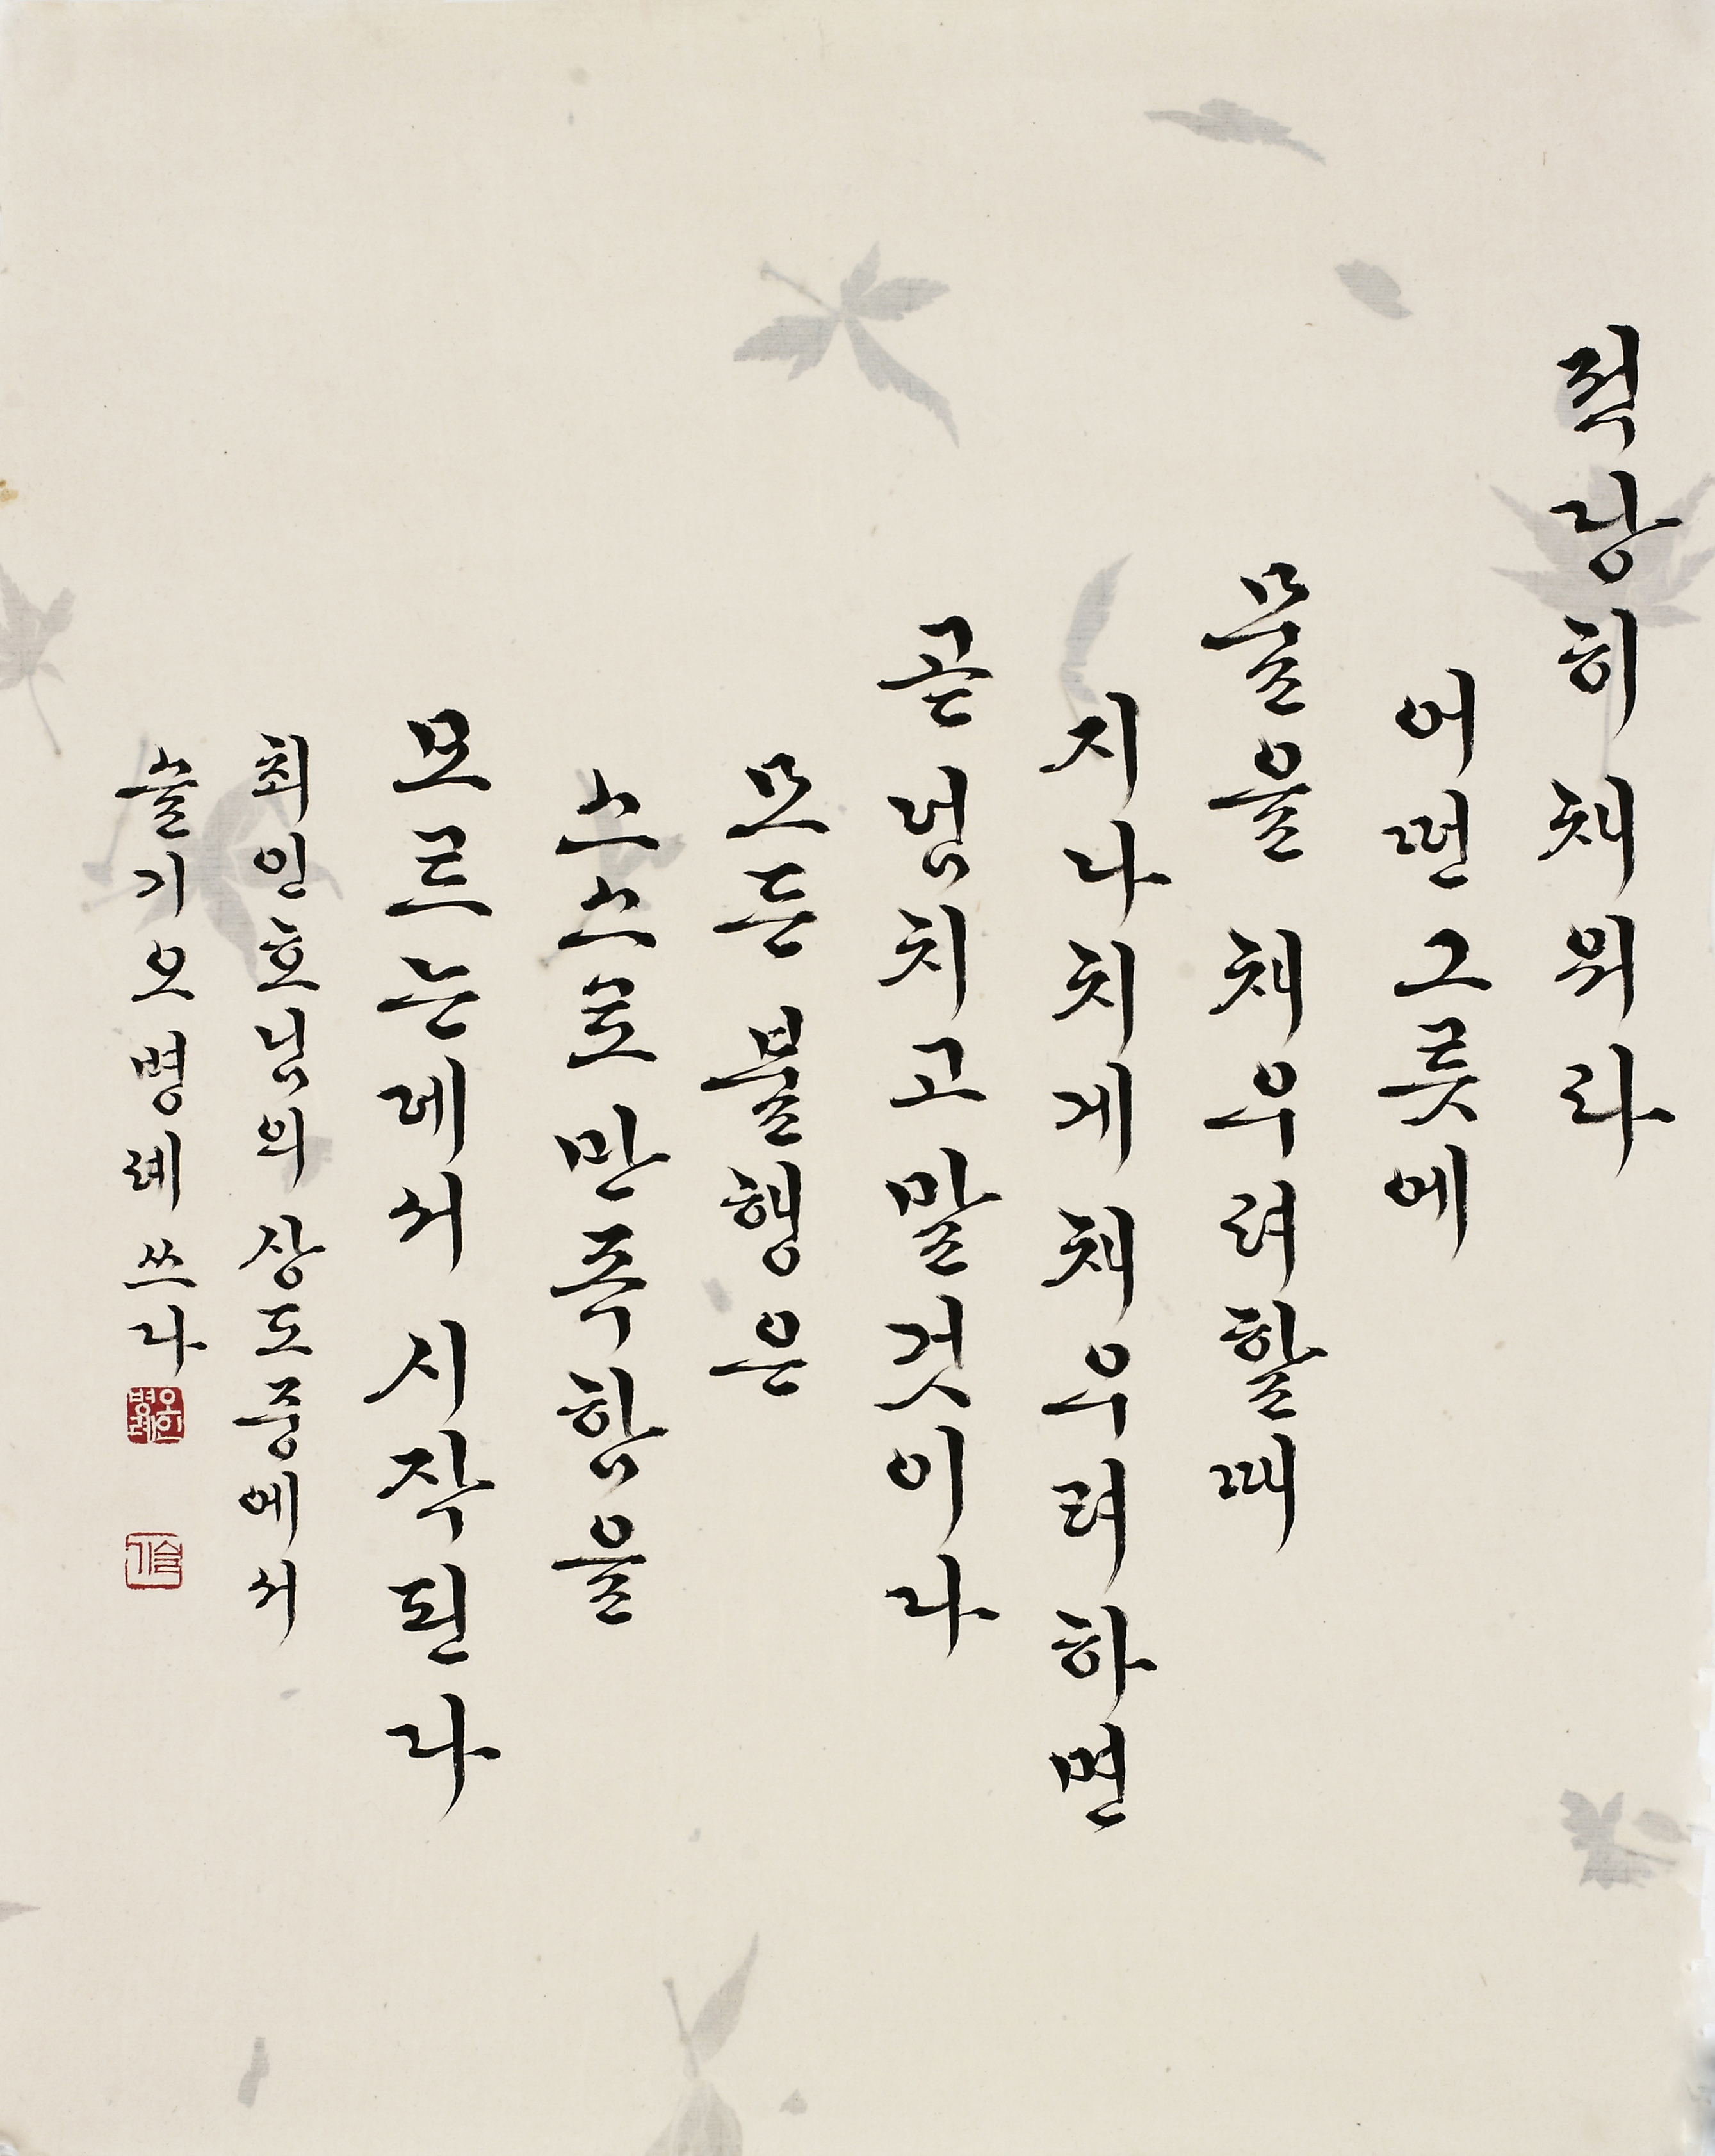 적당히 채워라
어떤 그릇에
물을 채우려할 때
지나치게 채우려하면
곧 넘치고 말것이다
모든 불행은
스스로 만족함을
모르는데서 시작된다
최인호님의 상도중에서
슬기 오명례 쓰다